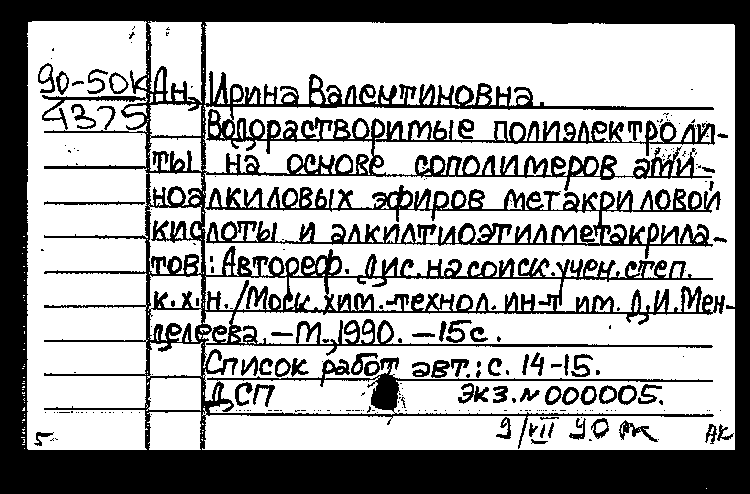 90-50К Ан, Ирина Валентиновна.
4375 Водорастворимые полиэлектроли-
ты на основе сополимеров ами-
ноалкиловых эфиров метакриловой
кислоты и алкилтиоэтилметакрила-
тов: Автореф. дис. на соиск. учен. степ.
к.х.н. /Моск. хим.-технол. ин-т им. Д.И. Мен-
делеева. -М., 1990. -15с.
Список работ авт.: с. 14-15.
ДСП Экз. № 000005.
5- 9/VII 90 АК